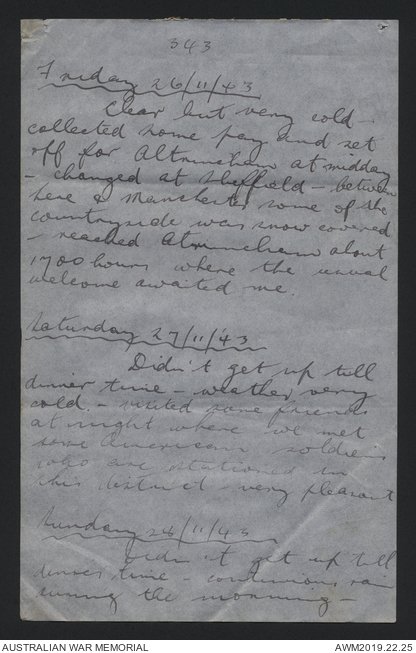 343
Friday 26/11/43
Clear but very cold -
collected some pay and set
off for Altrincham at midday
- changed at Sheffield - between
here & Manchester some of the
countryside was snow covered
- reached Altrincham about
1700 hours where the usual
welcome awaited me.
Saturday 27/11/43
Didn't get up till
dinner time - weather very
cold - visited some friends
at night where we met
some American soldiers
who are stationed in
this district - very pleasant
Sunday 28/11/43
Didn't get up till
dinner time - continuous rain
during the morning -
AUSTRALIAN WAR MEMORIAL
AWM2019.22.25